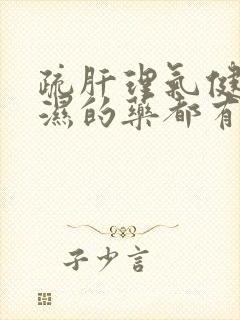 疏肝理氣健
濕的藥都有
子少言